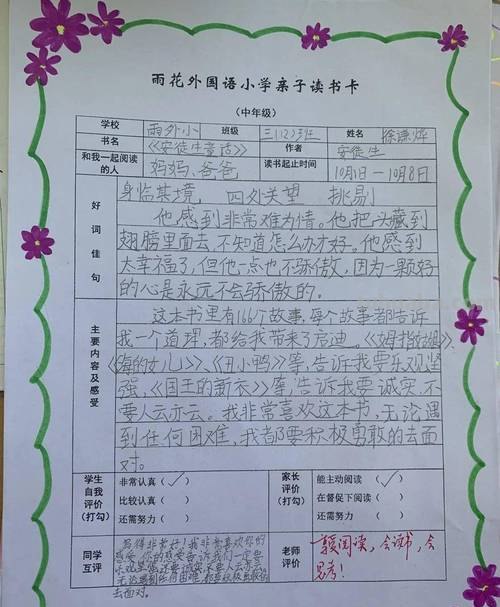 雨花外国语小学亲子读书卡
（中年级）
学校 雨外小 班级 三（12）班 姓名 徐谦烨
书名 《安徒生童话》 作者 安徒生
和我一起阅读的人 妈妈、爸爸 读书起止时间 10月1日—10月8日
好词佳句
身临其境， 四处关望 挑剔
他感到非常难为情。他把头藏到
翅膀里面去，不知道怎么办才好。他感到
太幸福了，但他一点也不骄傲，因为一颗好
的心是永远不会骄傲的。
主要内容及感受
这本书里有166个故事，每个故事都告诉
我一个道理，都给我带来了启迪。《姆指姑娘》
《海的女儿》、《丑小鸭》等，告诉我要乐观坚
强，《国王的新衣》等，告诉我要诚实，不
要人云亦云。我非常喜欢这本书，无论遇
到任何困难，我都要积极勇敢的去面
对。
学生自我评价（打勾）
非常认真（✓）
比较认真（ ）
还需努力（ ）
家长评价（打勾）
能主动阅读（✓）
在督促下阅读（ ）
还需努力（ ）
同学互评
写得非常好！我非常喜欢你的
感受，你的感受告诉我们一定要
乐观坚强还要诚实不要人云亦云。
无论遇到任何困难，都要积极勇敢的
去面对。
老师评价
阅读，会读书，会
思考！